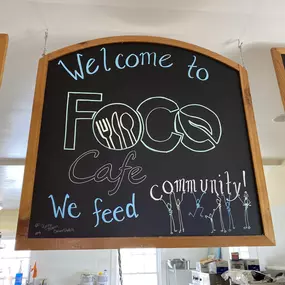 Welcome to
FoCo
Cafe
We feed
community!